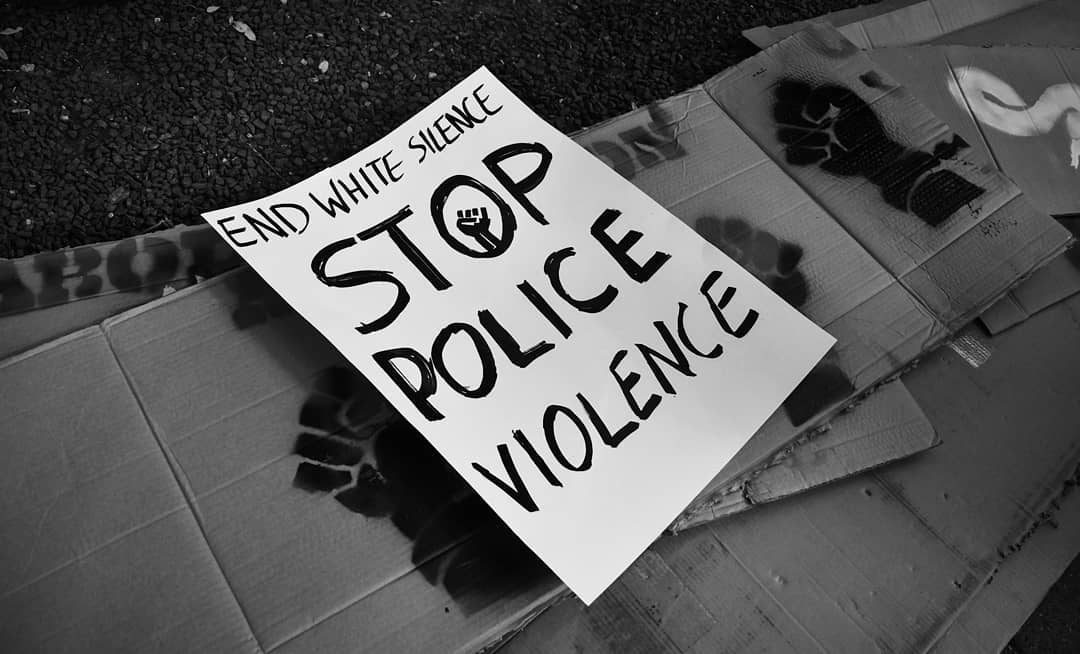 END WHITE SILENCE
STOP
POLICE
VIOLENCE